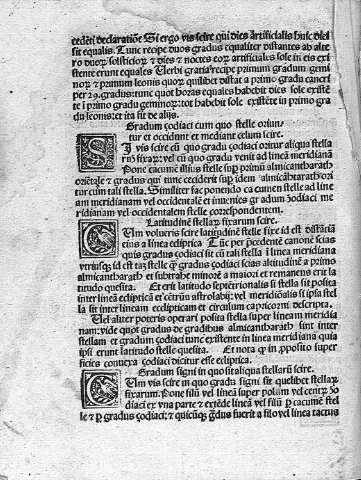 cedēti declaratiōe Si ergo vis scire qui dies artificialis huic diei
sit equalis. Tunc recipe duos gradus equaliter distantes ab alte
ro duoꝝ solsticioꝝ ⁊ dies ⁊ noctes eoꝝ artificiales sole in eis exi
stente erunt equales Uerbi gratia recipe primum gradum gemi
noꝝ ⁊ primum leonis quoꝝ quilibet distat a primo gradu cancri
per 29. gradus: tunc quot horas equales habebit dies sole existē
te ī primo gradu geminoꝝ: tot habebit sole existēte in primo gra
du leonis: et ita sit de alijs.
Gradum zodiaci cum quo stelle oriun⸗
tur et occidunt et mediant celum scire.
SI vis scire cū quo gradu zodiaci oritur aliqua stella
rū fixaꝝ: vel cū quo gradu venit ad lineā meridianā
Pone cacumē illius stelle suꝑ primū almicantharath
oriētale ⁊ gradus qui tunc ceciderit suꝑ idem almicātharath ori
tur cum tali stella. Similiter fac ponendo cacumen stelle ad line
am meridianam vel occidentalē et inuenies gradum zodiaci me
ridianum vel occidentalem stelle correspondentem.
Latitudinē stellaꝝ fixarum scire.
CUm volueris scire latitudinē stelle fixe id est distātiā
eius a linea ecliptica Tūc per precedentē canonē scias
quis gradus zodiaci sit cū tali stella ī linea meridiana
vtriusqꝫ id est tā stelle qꝫ gradus zodiaci scias altitudinē a primo
almicantharath et subtrahe minorē a maiori et remanens erit la
titudo quesita. Et erit latitudo septētrionalis si stella sit posita
inter lineā eclipticā et cētrū astrolabij: vel meridiōalis si ipsa stel
la sit inter lineam eclipticam et circulum capricorni descripta.
Uel aliter poteris operari posita stella super lineam meridia
nam: vide quot gradus de gradibus almicantharath sint inter
stellam et gradum zodiaci tunc existente in linea meridiana quia
ipsi erunt latitudo stelle quesita. Et nota ꝙ in ꝓposito super
ficies conuexa zodiaci dicitur esse ecliptica.
Gradum signi in quo sit aliqua stellarū scire.
CUm vis scire in quo gradu signi sit quelibet stellaꝝ
fixarum. Pone filū vel lineā super polum vel centrū zo
diaci ex vna parte ⁊ extēde lineā vel filū ꝑ cacumē stel
le ⁊ ꝑ gradus zodiaci; ⁊ quicūqꝫ gradus fuerit a filo vel linea tactus